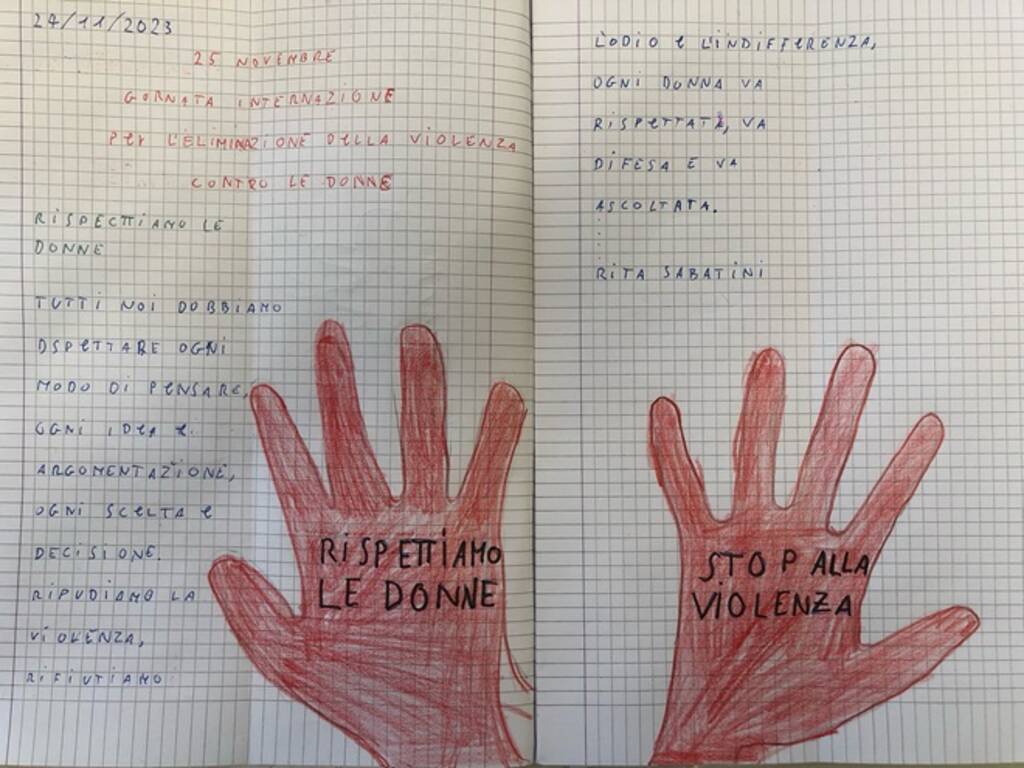 24/11/2023
25 NOVEMBRE
GORNATA INTERNAZIONE
PER L'ELIMINAZIONE DELLA VIOLENZA
CONTRO LE DONNE
RISPECTTIAMO LE
DONNE
TUTTI NOI DOBBIAMO
DSPETTARE OGNI
MODO DI PENSARE,
OGNI IDEA E
ARGOMENTAZIONE,
OGNI SCELTA E
DECISIONE.
RIPUDIAMO LA
VIOLENZA,
RIFIUTIAMO
RISPETTIAMO
LE DONNE
L'ODIO E L'INDIFFERENZA,
OGNI DONNA VA
RISPETTATA, VA
DIFESA E VA
ASCOLTATA.
RITA SABATINI
STOP ALLA
VIOLENZA